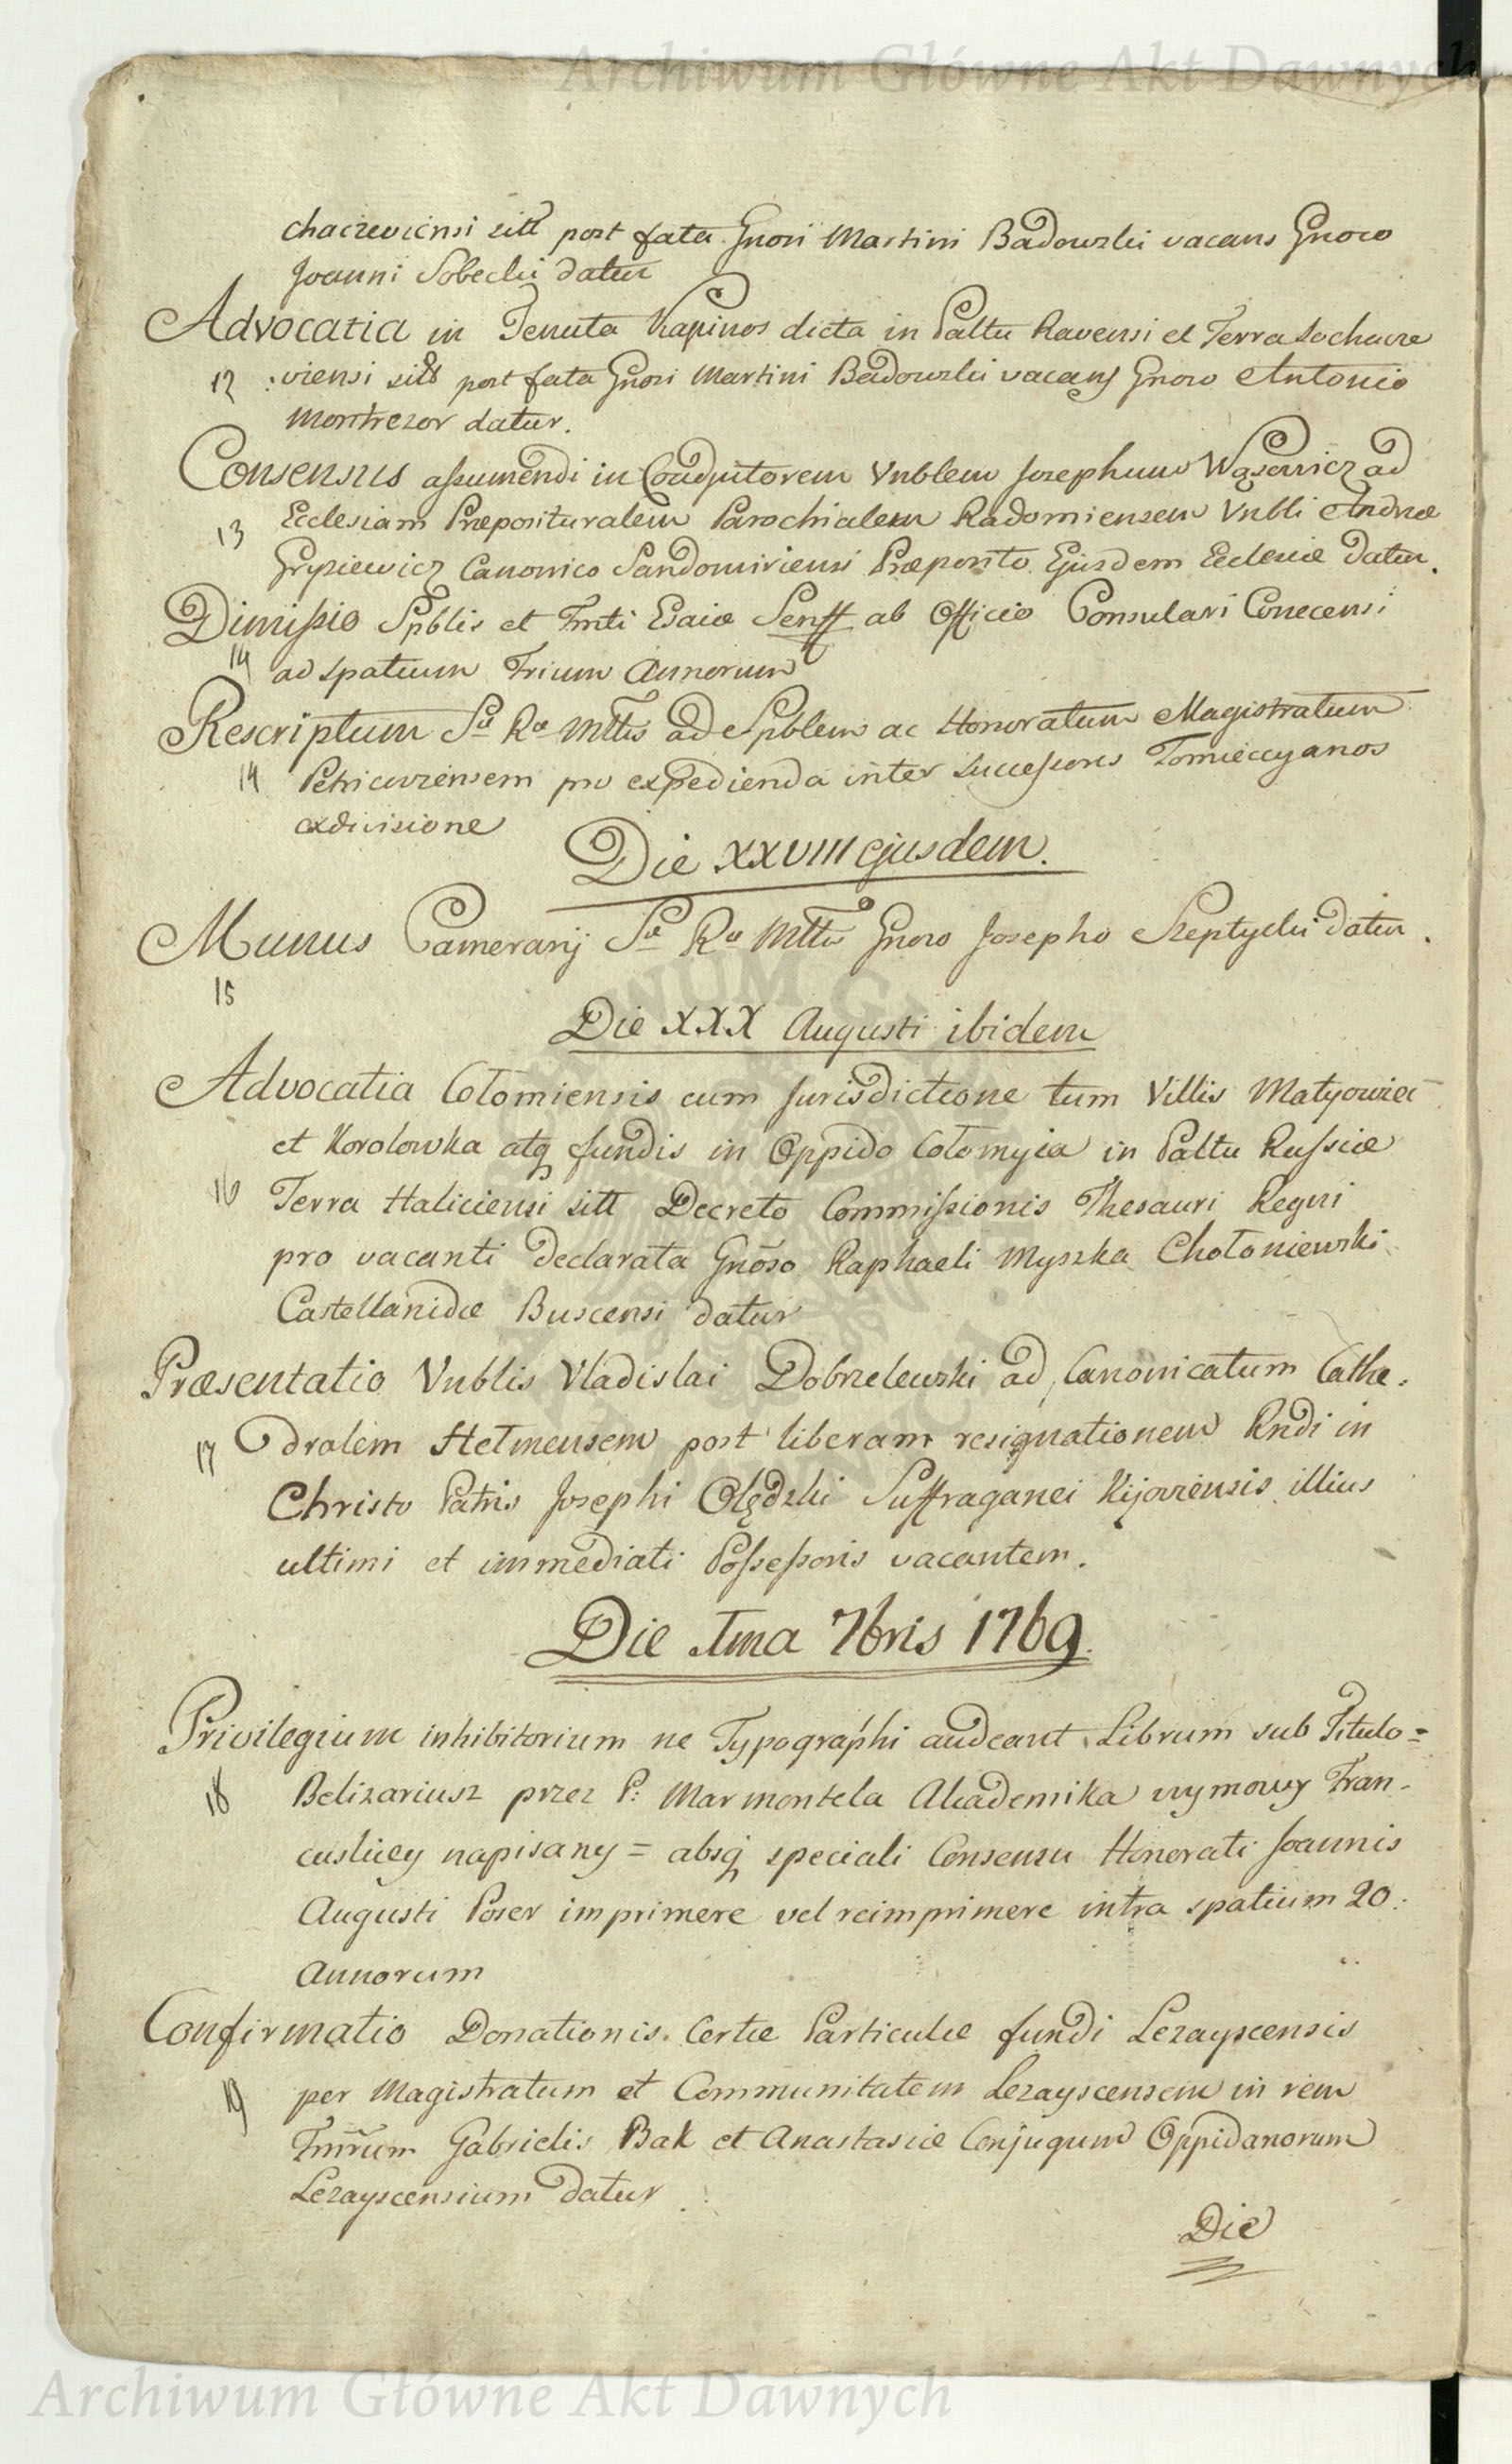 Archiwum Główne Akt Dawnych
chaczeviensi sitt post fata Gnosi Martini Badowski vacans Gnoso
Joanni Sobecki datur
Advocatia in Tenuta Kapinos dicta in Paltu Ravensi et Terra Sochacze
12 :viensi sitt post fata Gnosi Martini Badowski vacans Gnoso Antonio
Montrezor datur.
Consensus assumendi in Coadjutorem Vnblem Josephum Wąsowicz ad
13 Ecclesiam Præposituralem Parochialem Radomiensem Vnbli Andreæ
Grypiewicz Canonico Sandomiriensi Præposito Ejusdem Ecclesiæ datur.
Dimissio Spblis et Fmti Esaiæ Senff ab Officio Consulari Conecensi
14 ad spatium Trium Annorum
Rescriptum Sæ Ræ Mttis ad Spblem ac Honoratum Magistratum
14 Petricoviensem pro expedienda inter Successores Tomieccyanos
exdivisione
Die XXVIII ejusdem.
Munus Camerarij Sæ Ræ Mttis Gnoso Josepho Szeptycki datur.
15
Die XXX Augusti ibidem
Advocatia Colomiensis cum Jurisdictione tum Villis Matyowiec
et Korolowka atq fundis in Oppido Colomyia in Paltu Russiæ
16 Terra Haliciensi sitt Decreto Commissionis Thesauri Regni
pro vacanti declarata Gnoso Raphaeli Myszka Chołoniewski
Castellanidæ Buscensi datur
Præsentatio Vnblis Vladislai Dobrzelewski ad Canonicatum Cathe.
17 dralem Helmensem post liberam resignationem Rndi in
Christo Patris Josephi Olędzki Suffraganei Kijoviensis illius
ultimi et immediati Possessoris vacantem.
Die Ima 7bris 1769.
Privilegium inhibitorium ne Typographi audeant Librum sub Titulo =
18 Belizariusz przez P: Marmontela Akademika wymowy Fran-
cuskiey napisany = absq speciali Consensu Honorati Joannis
Augusti Poser imprimere vel reimprimere intra spatium 20.
Annorum
Confirmatio Donationis Certæ Particulæ fundi Lezayscensis
19 per Magistratum et Communitatem Lezayscensem in rem
Fmrum Gabrielis Bak et Anastasiæ Conjugum Oppidanorum
Lezayscensium datur
Die
Archiwum Główne Akt Dawnych